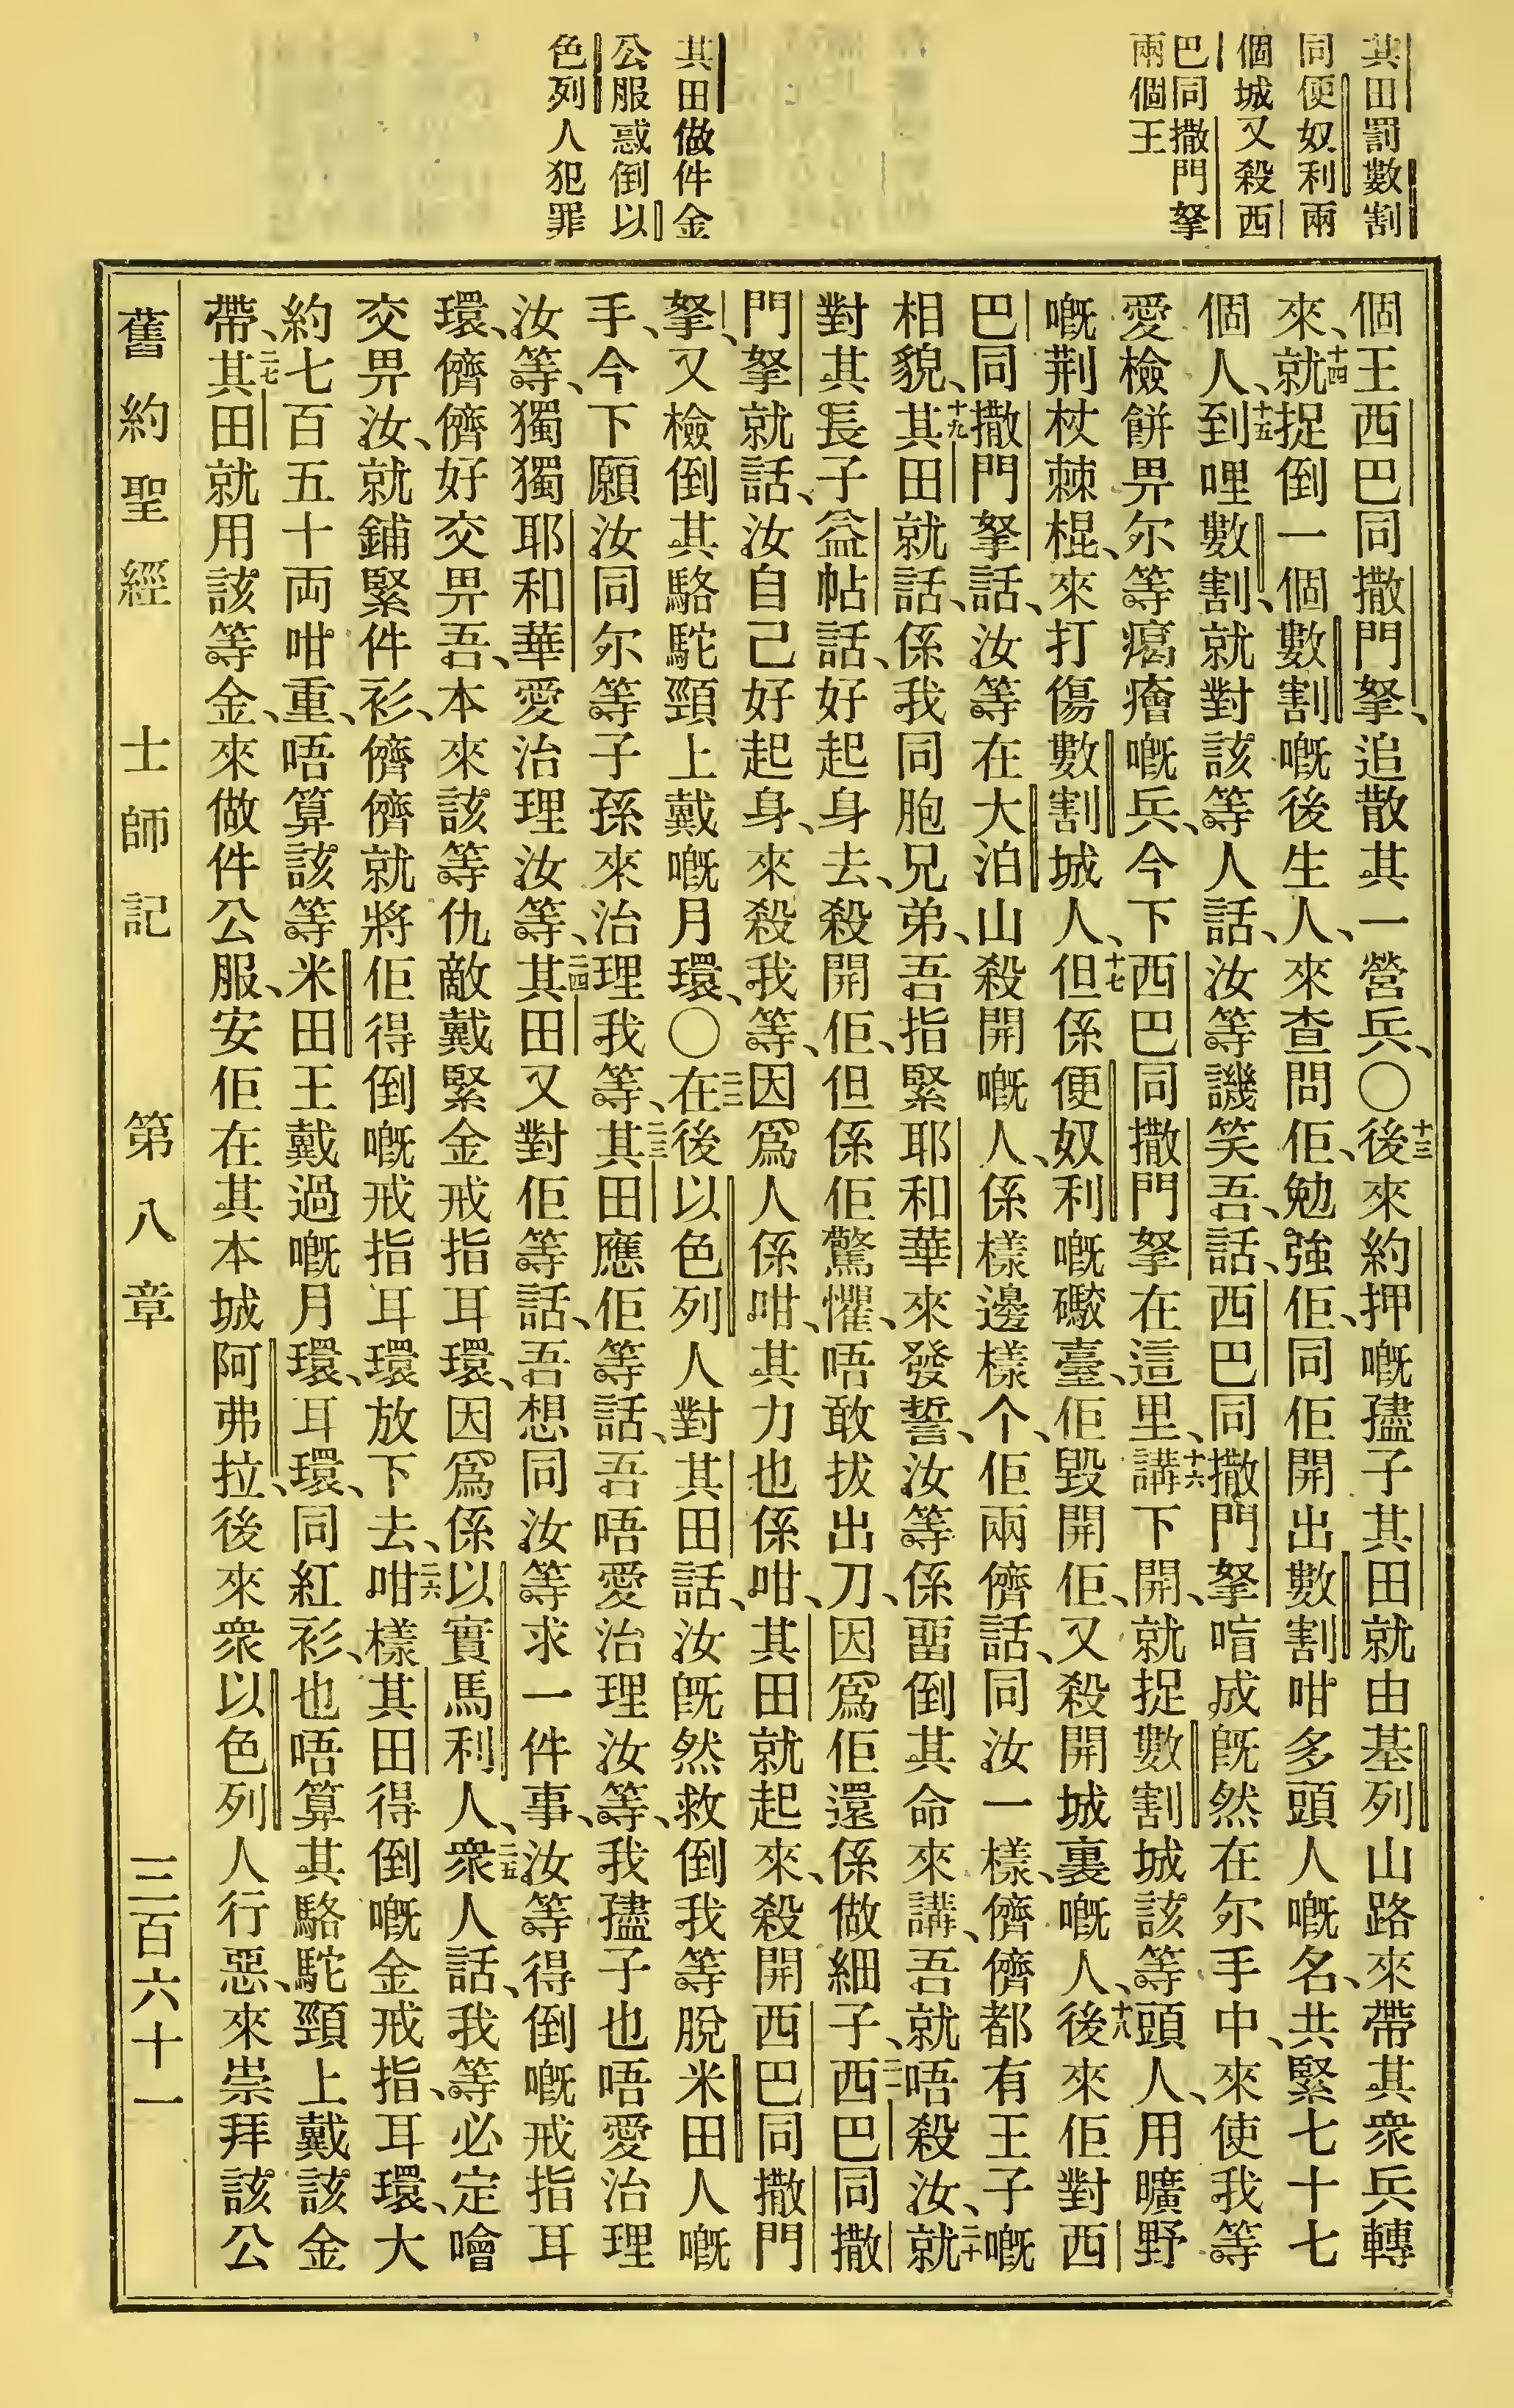 其田罰數割
同便奴利兩
個城又殺西
巴同撒門拏
兩個王
其田做件金
公服惑倒以
色列人犯罪
個王西巴同撒門拏、追散其一營兵、〇十三後來約押嘅孻子其田就由基列山路來帶其衆兵轉
來、十四就捉倒一個數割嘅後生人、來查問佢、勉強佢、同佢開出數割咁多頭人嘅名、共緊七十七
個人、十五到哩數割、就對該等人話、汝等譏笑吾、話、西巴同撒門拏喑成旣然在尔手中、來使我等
愛檢餅畀尔等癘癐嘅兵、今下西巴同撒門拏在這里、十六講下開、就捉數割城該等頭人、用曠野
嘅荆杖棘棍、來打傷數割城人、十七但係便奴利嘅礮臺、佢毀開佢、又殺開城裏嘅人、十八後來佢對西
巴同撒門拏話、汝等在大泊山殺開嘅人、係樣邊樣个、佢兩儕話、同汝一樣、儕儕都有王子嘅
相貌、十九其田就話、係我同胞兄弟、吾指緊耶和華來發誓、汝等係畱倒其命來講、吾就唔殺汝、二十就
對其長子益帖話、好起身去、殺開佢、但係佢驚懼、唔敢拔出刀、因爲佢還係做細子、二一西巴同撒
門拏就話、汝自己好起身、來殺我等、因爲人係咁、其力也係咁、其田就起來、殺開西巴同撒門
拏、又檢倒其駱駝頸上戴嘅月環、〇二二在後以色列人對其田話、汝旣然救倒我等脫米田人嘅
手、今下願汝同尔等子孫來治理我等、二三其田應佢等話、吾唔愛治理汝等、我孻子也唔愛治理
汝等、獨獨耶和華愛治理汝等、二四其田又對佢等話、吾想同汝等求一件事、汝等得倒嘅戒指耳
環、儕儕好交畀吾、本來該等仇敵戴緊金戒指耳環、因爲係以實馬利人、二五衆人話、我等必定噲
交畀汝、就鋪緊件衫、儕儕就將佢得倒嘅戒指耳環放下去、二六咁樣其田得倒嘅金戒指、耳環、大
約七百五十両咁重、唔算該等米田王戴過嘅月環、耳環、同紅衫、也唔算其駱駝頸上戴該金
帶、二七其田就用該等金、來做件公服、安佢在其本城阿弗拉、後來衆以色列人行惡、來崇拜該公
舊約聖經　士師記　第八章　三百六十一